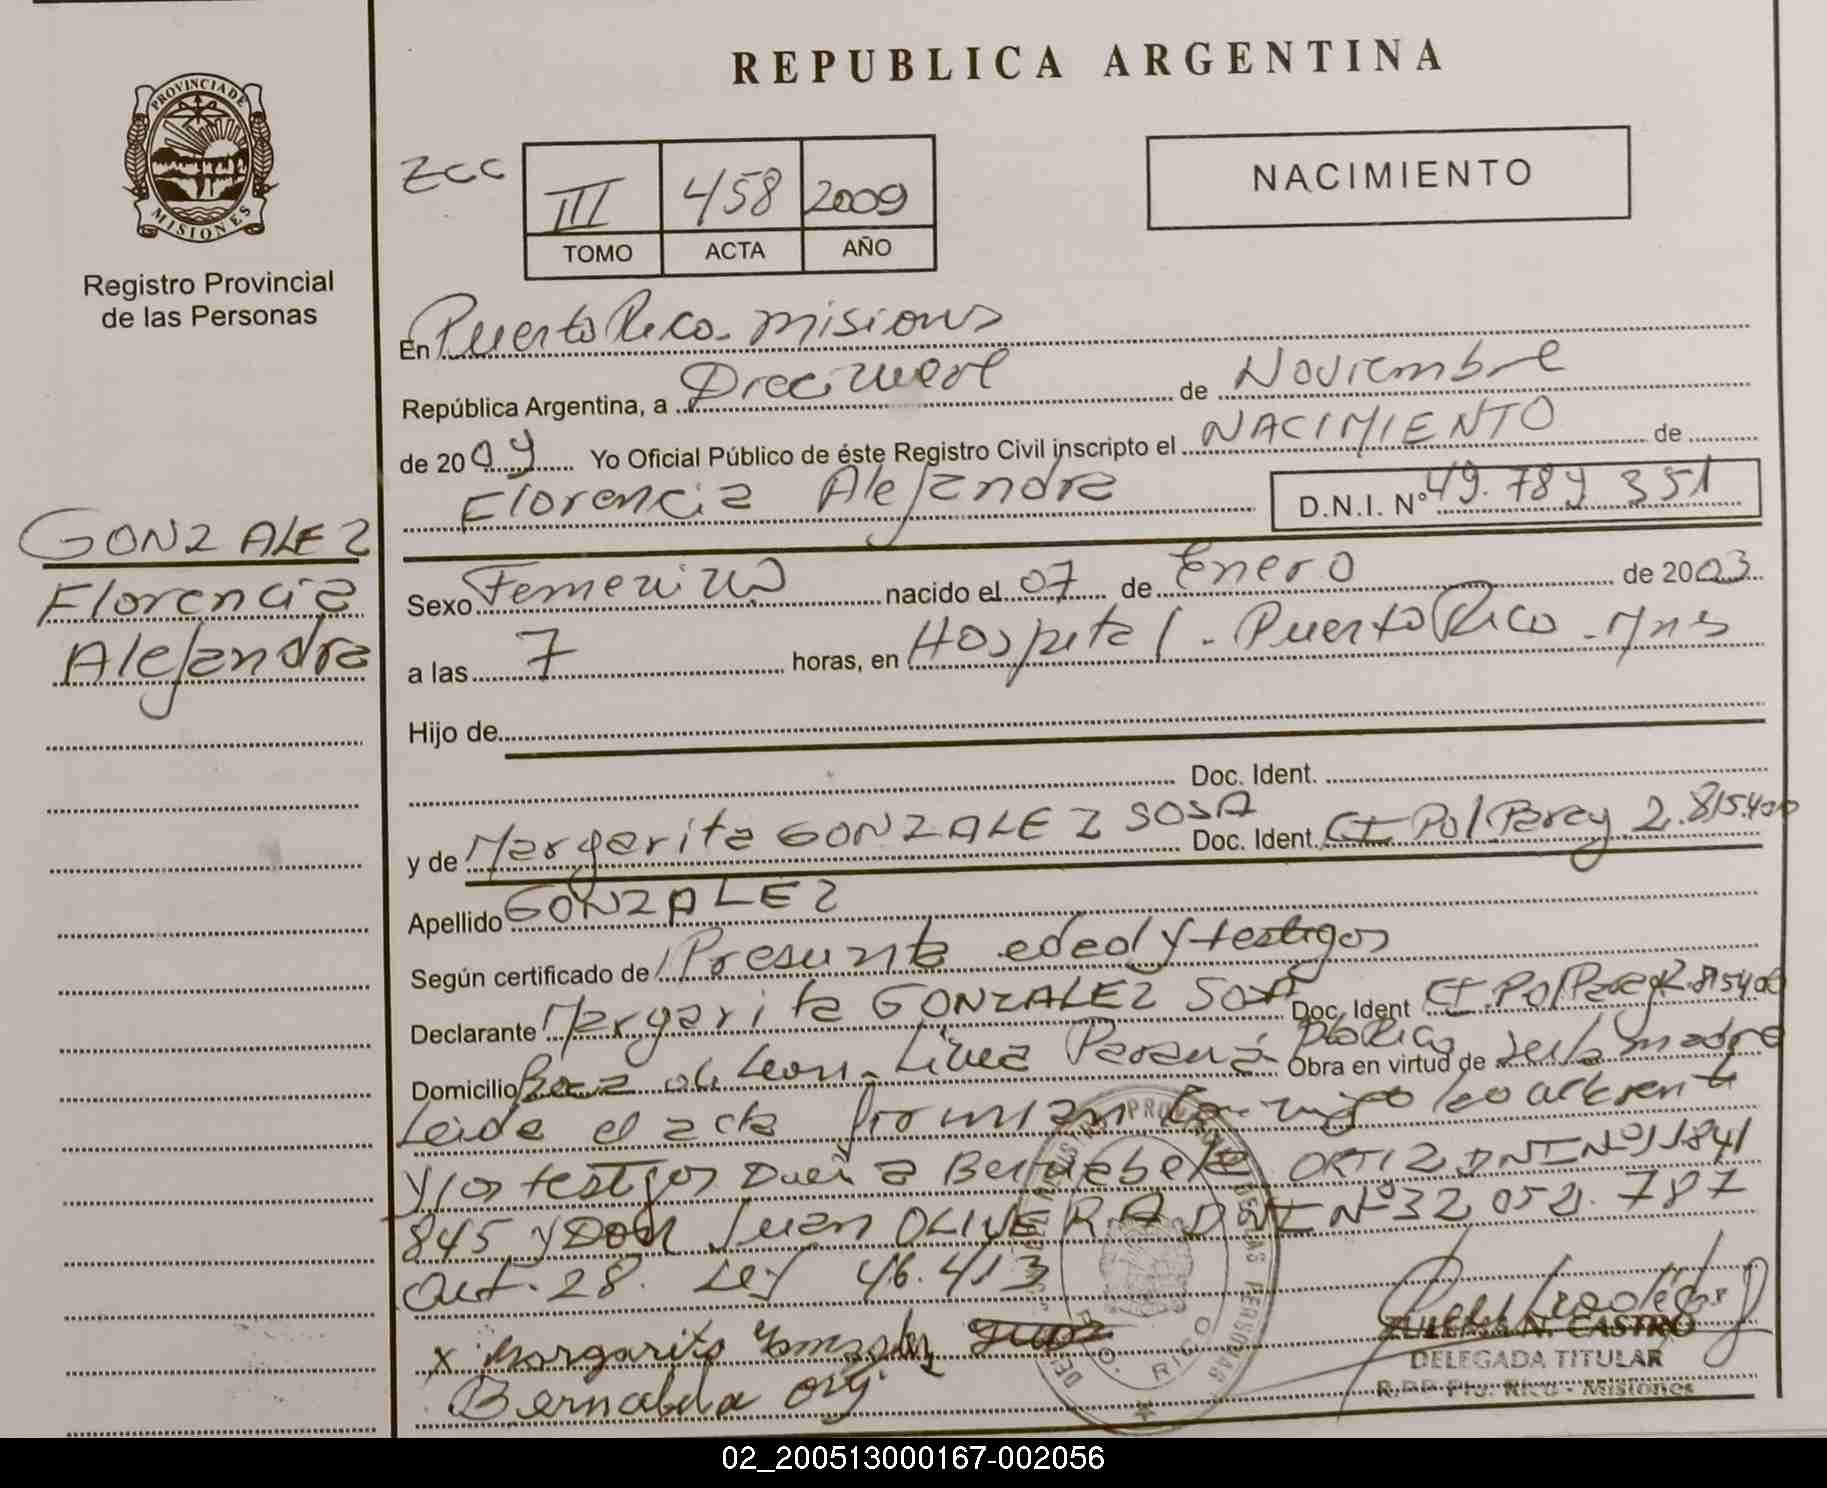 PROVINCIA DE
MISIONES
Registro Provincial
de las Personas
GONZALEZ
Florencia
Alejandra
REPUBLICA ARGENTINA
ZCC
III 458 2009
TOMO ACTA AÑO
NACIMIENTO
En Puerto Rico - Misiones
República Argentina, a Diecinueve de Noviembre
de 2009 Yo Oficial Público de éste Registro Civil inscripto el NACIMIENTO de
Florencia Alejandra D.N.I. Nº 49.789 351
Sexo Femenino nacido el 07 de Enero de 2003
a las 7 horas, en Hospital - Puerto Rico - Mns
Hijo de
Doc. Ident.
y de Margarita GONZALEZ SOSA Doc. Ident. CI Pol Paragy 2.815.400
Apellido GONZALEZ
Según certificado de Presunta edad y testigos
Declarante Margarita GONZALEZ SOSA Doc. Ident CI. Pol Paragy 2.815400
Domicilio de Leon - Linea Paraná Pto Rico Obra en virtud de ser la madre
Leida el acta firman conmigo la
y los testigos Doña Bernabela ORTIZ DNI Nº 11841
845 y Don Juan OLIVERA DNI Nº 32 052. 787
Art. 28. Ley 46.413
x Margarita Gonzalez
Bernabela
ZULEMA N. CASTRO
DELEGADA TITULAR
R.P.P Pto. Rico - Misiones
PTO. RICO
02_200513000167-002056